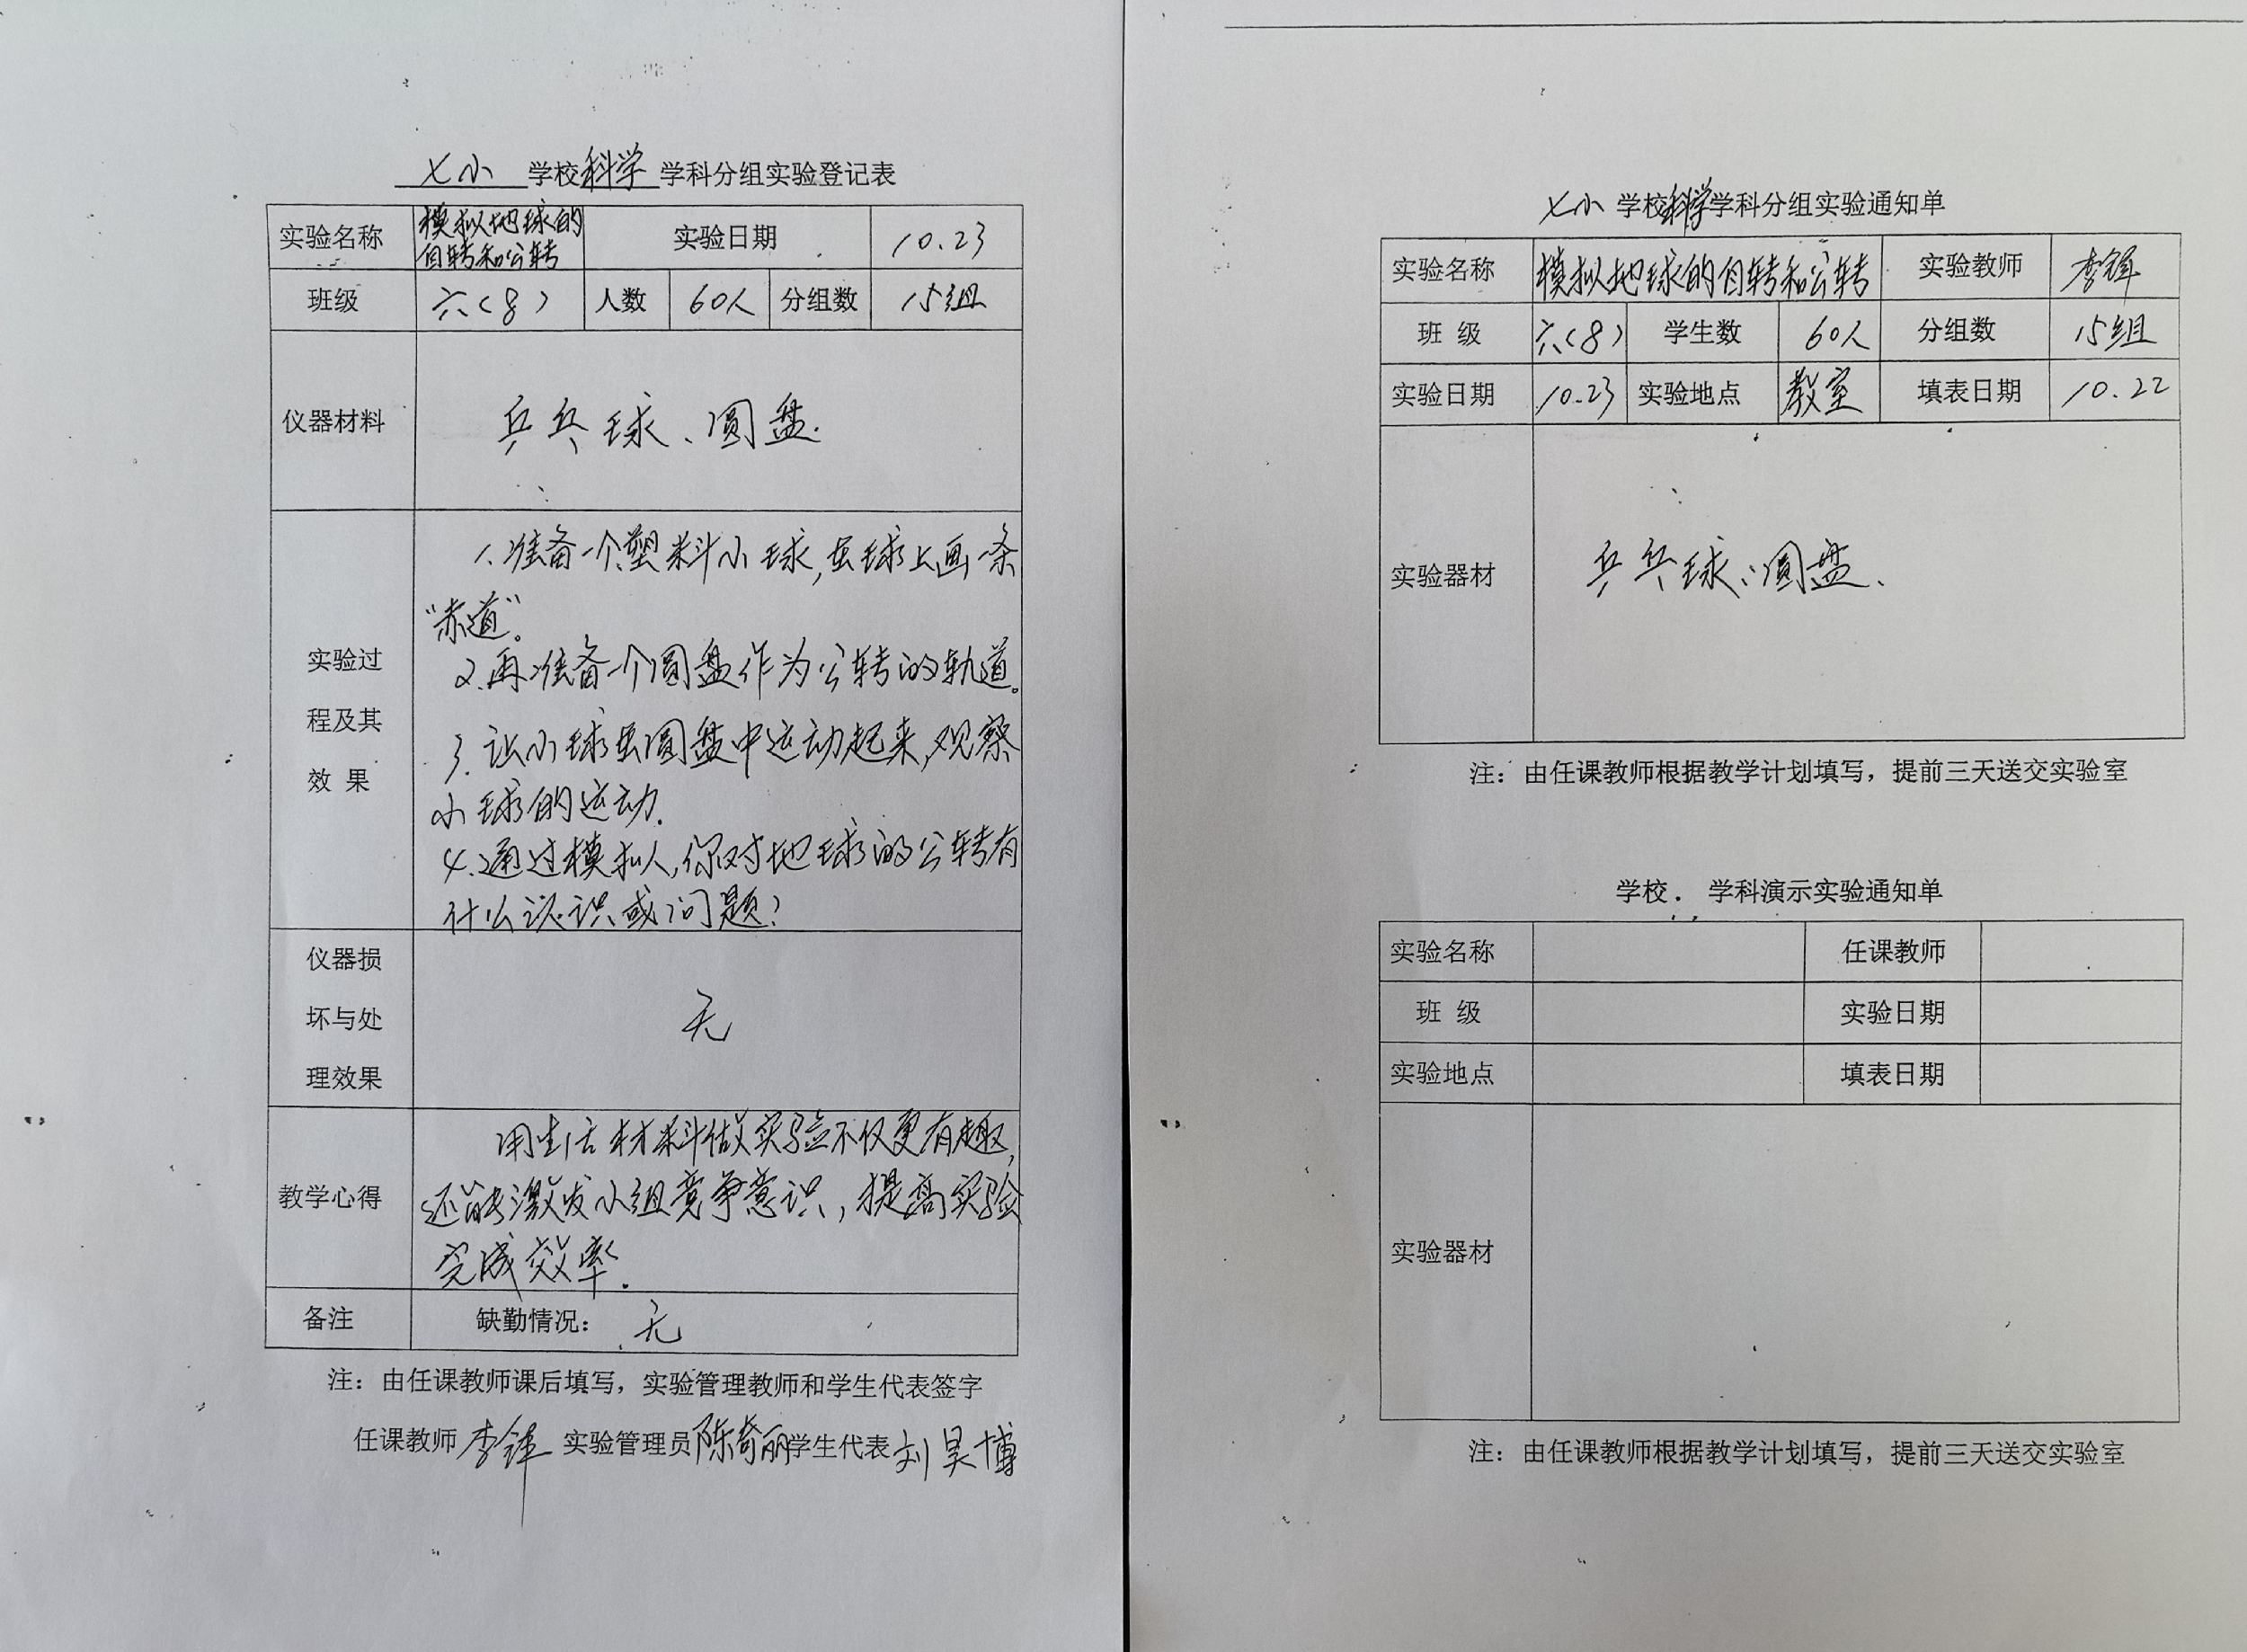 七小 学校科学 学科分组实验登记表
实验名称 模拟地球的自转和公转 实验日期 10.23
班级 六(8) 人数 60人 分组数 15组
仪器材料 乒乓球、圆盘.
实验过程及其效果
1.准备一个塑料小球,在球上画一条
“赤道”。
2.再准备一个圆盘作为公转的轨道。
3.让小球在圆盘中运动起来,观察
小球的运动.
4.通过模拟人,你对地球的公转有
什么认识或问题?
仪器损坏与处理效果 无
教学心得
用生活材料做实验不仅更有趣,
还能激发小组竞争意识,提高实验
完成效率.
备注 缺勤情况: 无
注:由任课教师课后填写,实验管理教师和学生代表签字
任课教师 李锋 实验管理员 陈奇丽 学生代表 刘昊博
七小 学校科学学科分组实验通知单
实验名称 模拟地球的自转和公转 实验教师 李锋
班 级 六(8) 学生数 60人 分组数 15组
实验日期 10.23 实验地点 教室 填表日期 10.22
实验器材 乒乓球、圆盘、
注:由任课教师根据教学计划填写,提前三天送交实验室
学校. 学科演示实验通知单
实验名称 任课教师
班 级 实验日期
实验地点 填表日期
实验器材
注:由任课教师根据教学计划填写,提前三天送交实验室